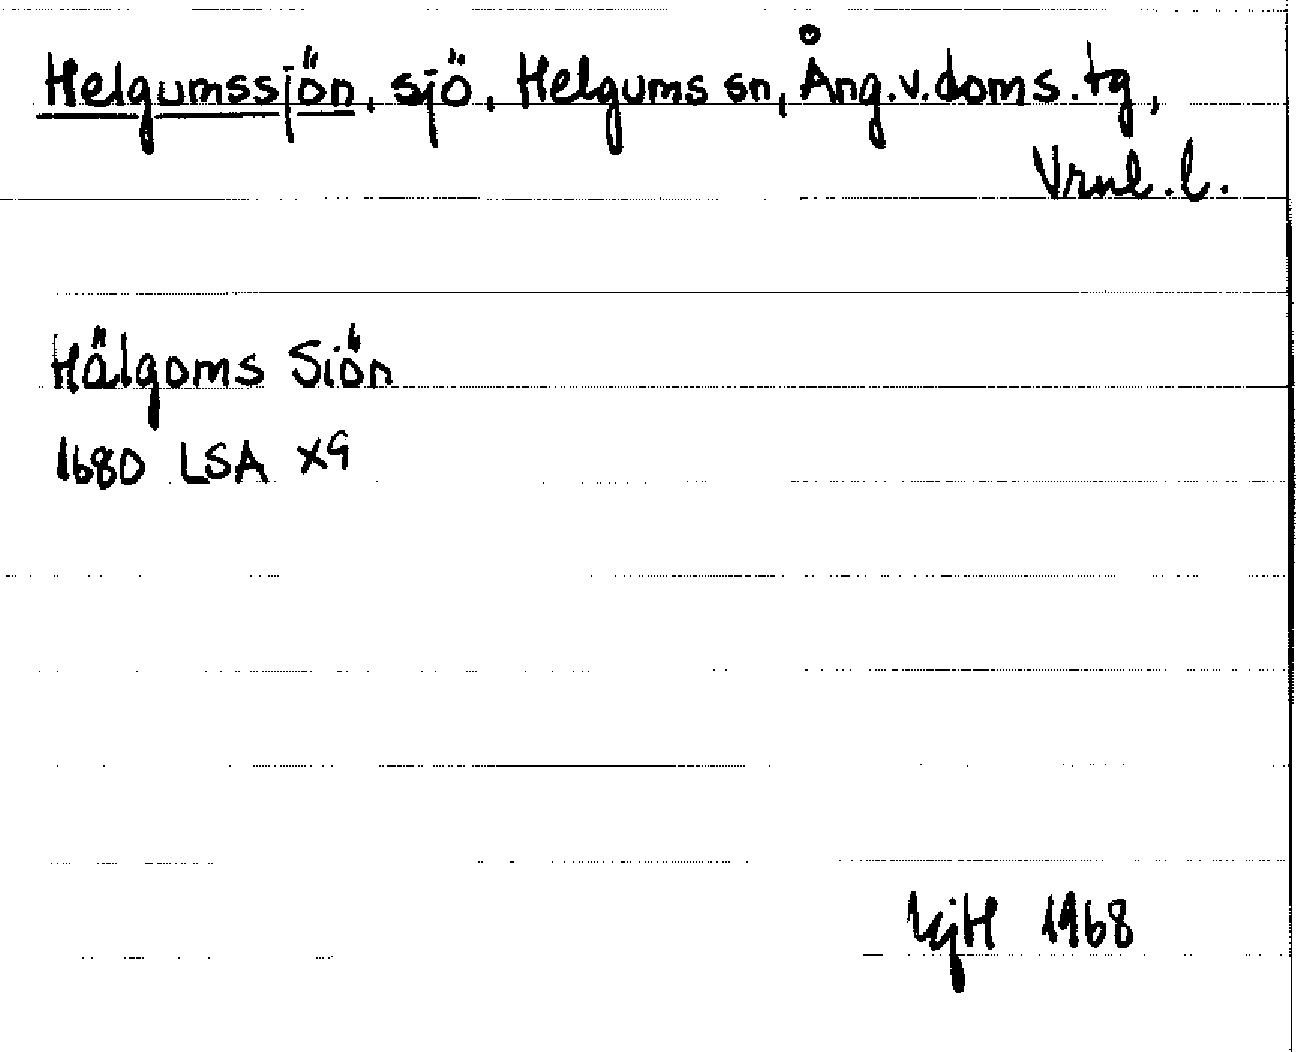 Helgumssjön, sjö, Helgums sn, Ång.v.doms.tg,
Vrnl.l.
Hälgoms Siön
1680 LSA X9
1968